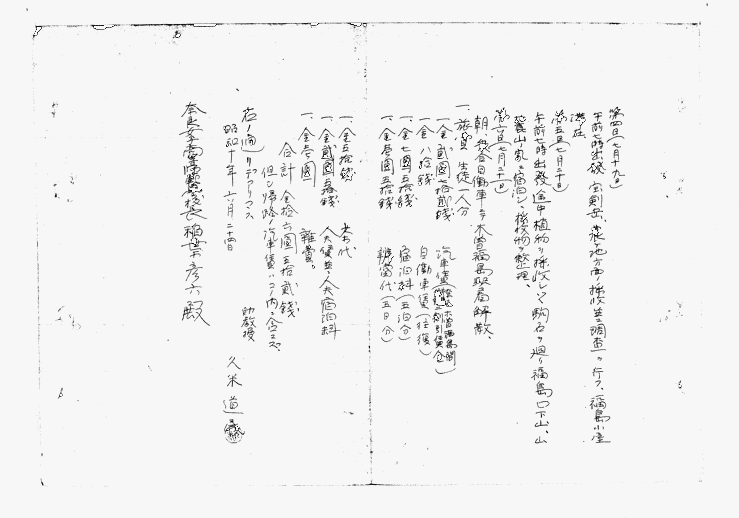 第四日(七月十九日)
午前七時出発、宝剣岳、濃ヶ池方面ノ採收並調査ヲ行フ、福島小屋
滞在
第五日(七月二十日)
午前七時出發途中植物ヲ採收シツツ駒石ヲ廻リ福島口下山、山
麓山ノ家ニ宿泊シ、採收物ヲ整理、
第六日(七月二十一日)
朝、乗合自働車ニテ木曽福島駅着解散、
一、旅費 生徒一人分
一、金貳圓七拾貳銭 汽車賃
一、金八拾銭 自働車賃(往復)
一、金七圓五拾銭 宿泊料(五泊分)
一、金壱圓五拾銭 辨當代(五日分)
一、金五拾銭 茶代
一、金貳圓五拾銭 人夫賃並ニ人夫宿泊料
一、金壱圓 雑費。
合計 金拾六圓五拾貳銭
但シ帰路ノ汽車賃ハコノ内ニ含マズ、
右ノ通リデアリマス
昭和十年六月二十四日
助教授 久米道
奈良女子高等師範学校長 稲葉彦六殿